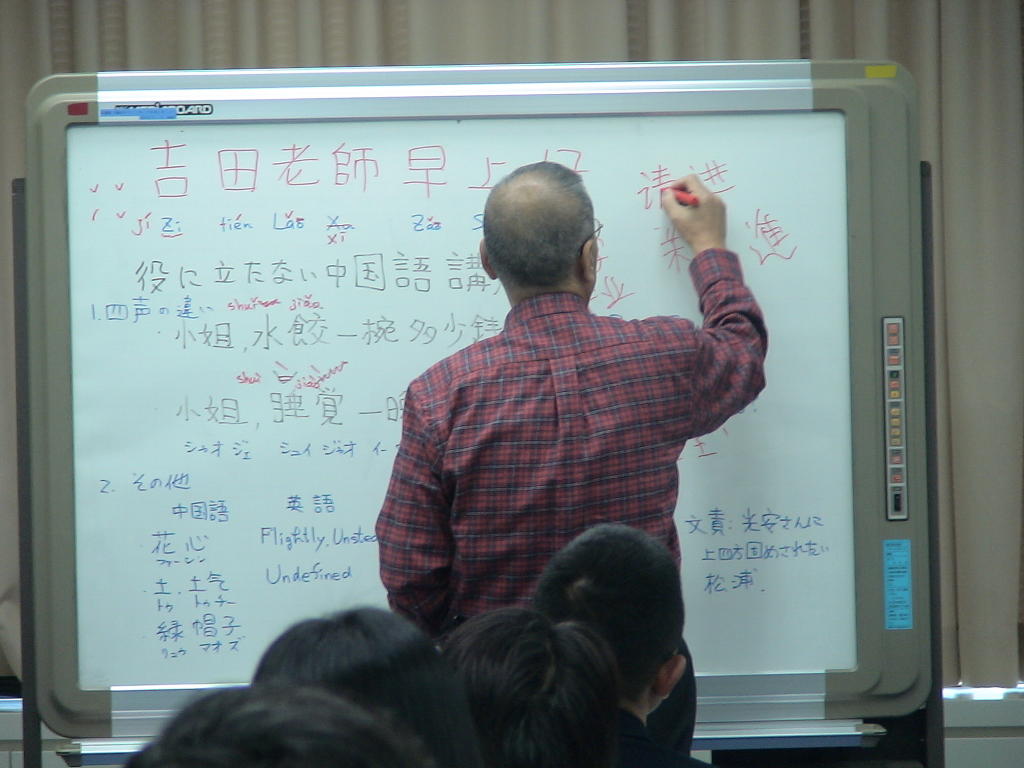 吉田老師早上好
jí Zi tién Lǎo Xī Zǎo
请进
進
役に立たない中国語講
1.四声の違い shuǐ jiǎo
小姐,水餃一椀多少錢
shuì jiào
小姐,睡覚一晩
シャオ ジェ シュイ ジャオ イー
2. その他
中国語 英語
花心 Flightly, Unste
ファーシン
土.土气 Undefined
トゥ トゥチー
緑帽子
リュウ マオズ
文責:光安さんに
上四方固めされたい
松浦.